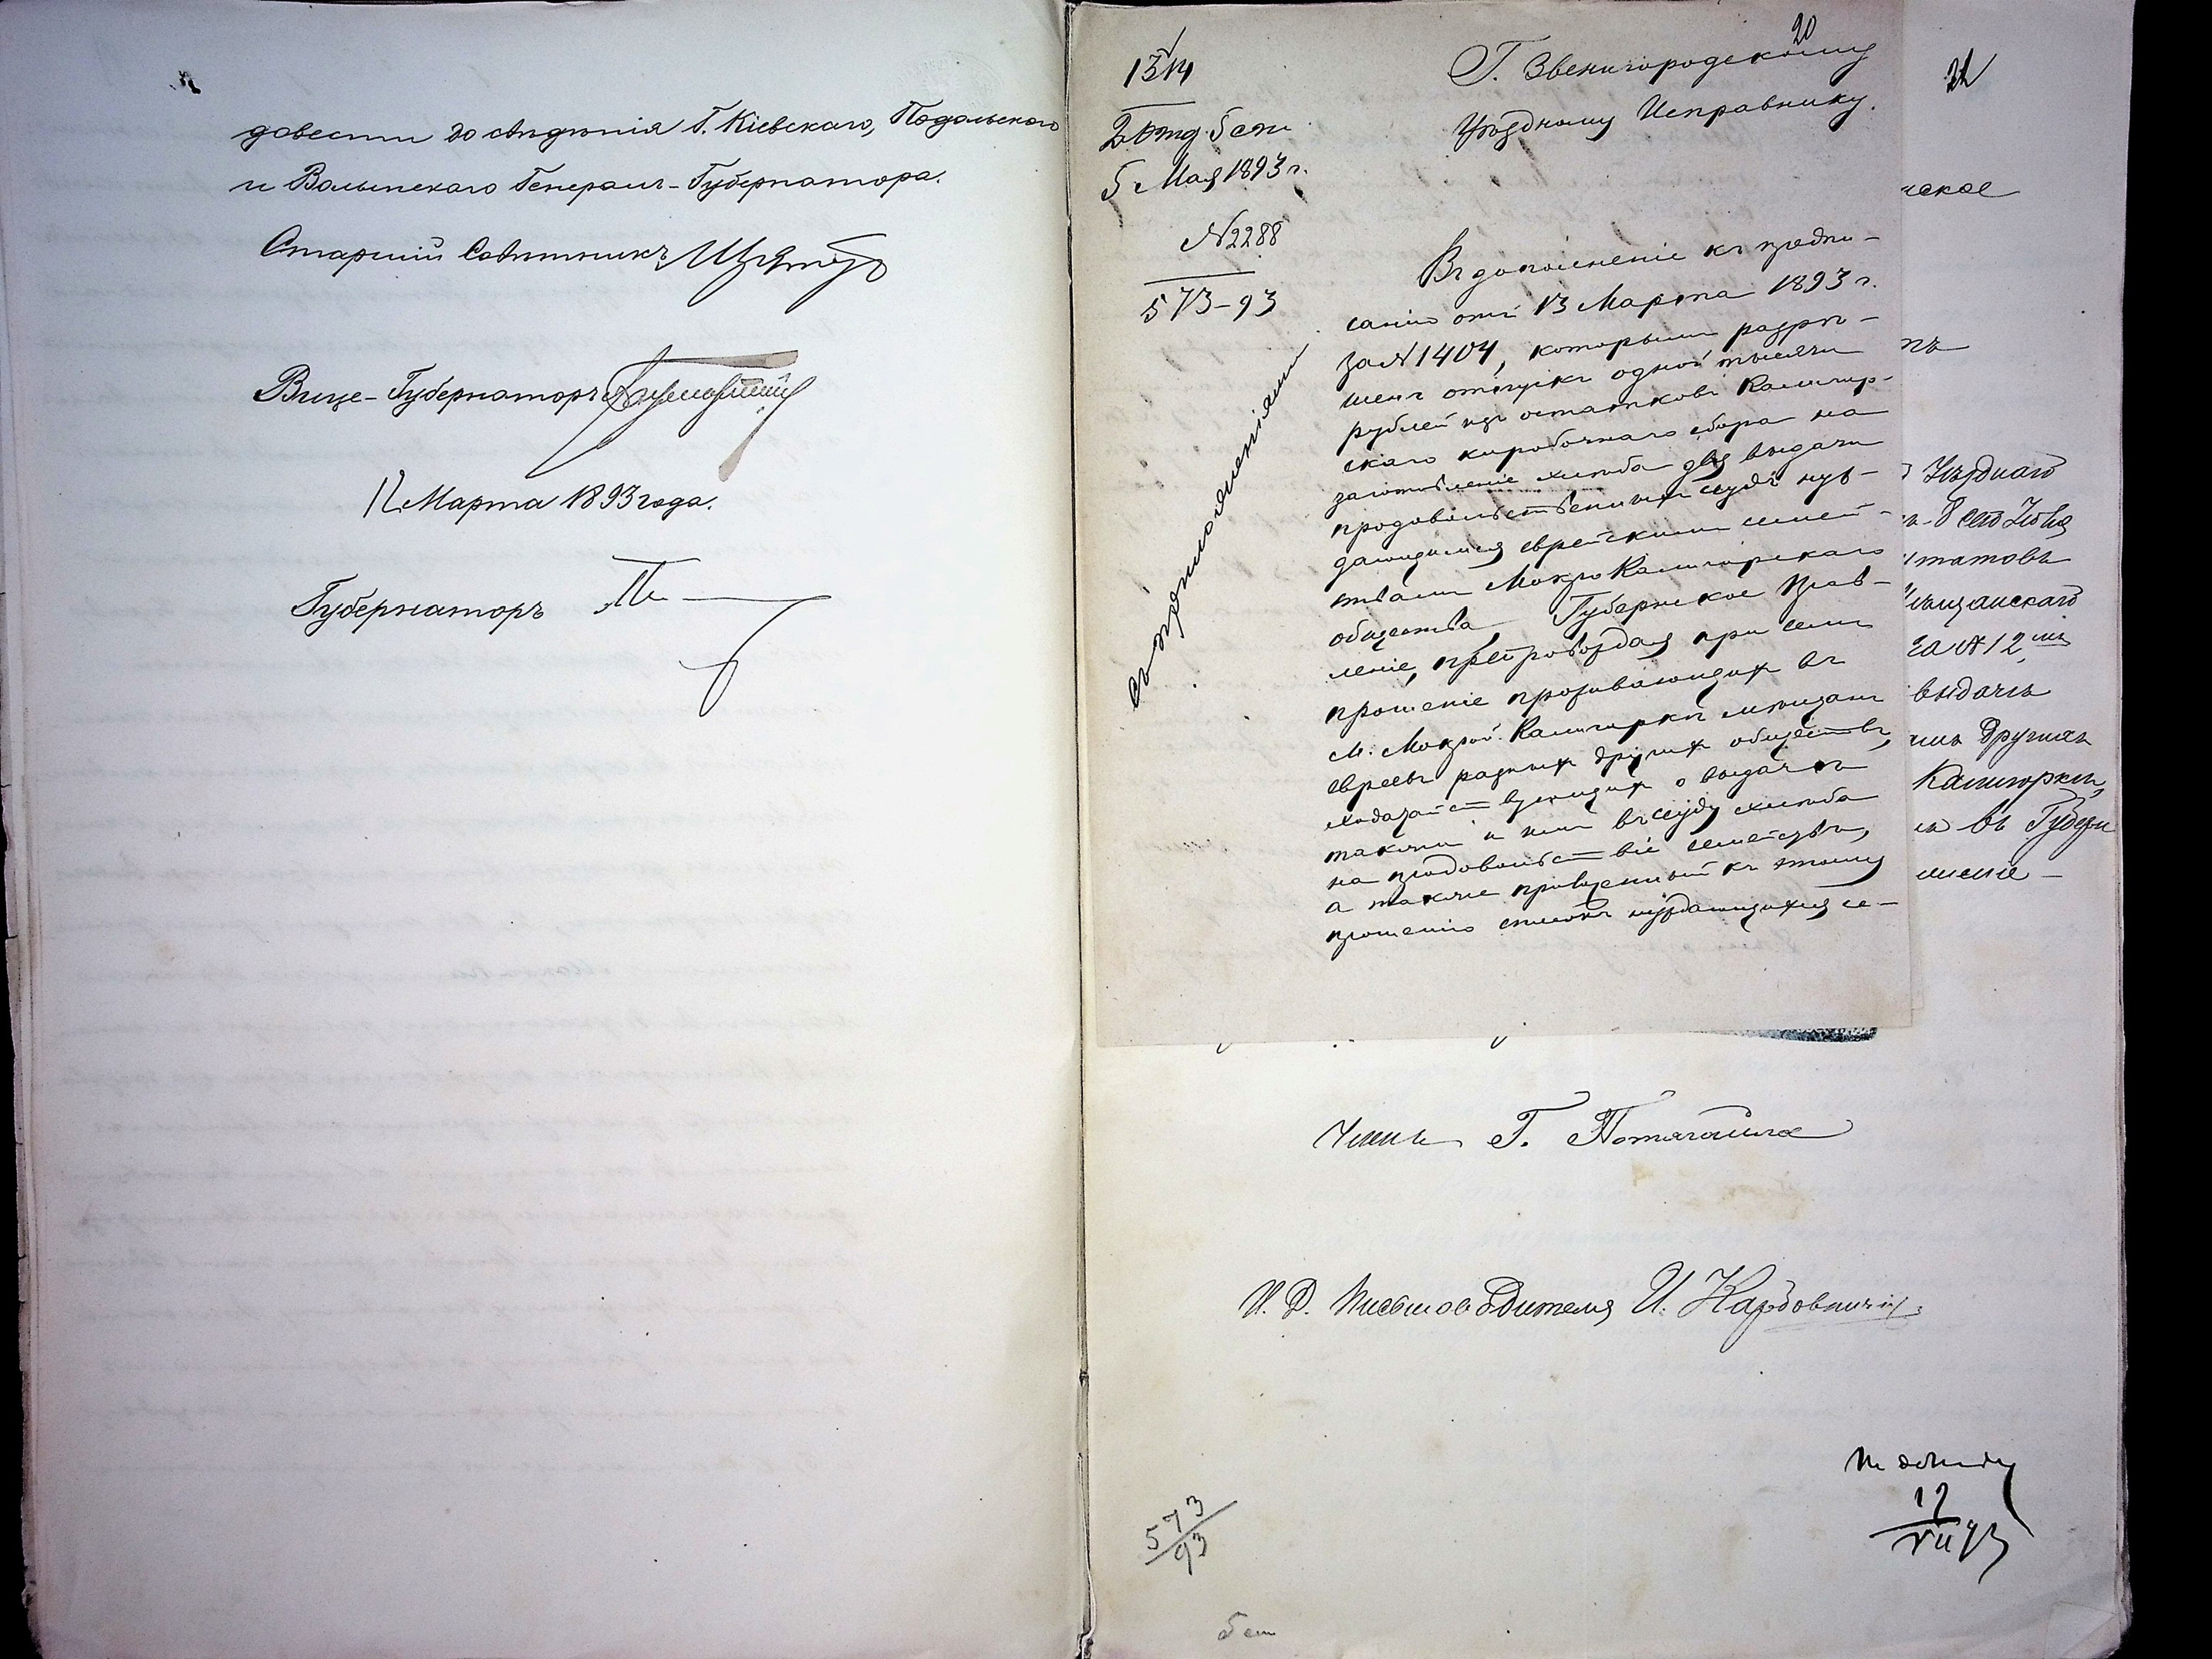 довести до свѣдѣнія Г. Кіевскаго, Подольскаго
и Волынскаго Генералъ-Губернатора.
Старшій Совѣтникъ
Вице-Губернаторъ
12 Марта 1893 года.
Губернаторъ
20
Г. Звенигородскому
Уѣздному Исправнику.
2 Отд. 5 ст.
5 Мая 1893 г.
№ 2288
573-93
съ приложеніями
Въ дополненіе къ предпи-
санію отъ 13 Марта 1893 г.
за № 1404, которымъ разрѣ-
шенъ отпускъ одной тысячи
рублей изъ остатковъ Калигор-
скаго коробочнаго сбора на
заготовленіе хлѣба для выдачи
продовольственныхъ ссудъ нуж-
дающимся еврейскимъ семей-
ствамъ Мокро Калигорскаго
общества Губернское Прав-
леніе, препровождая при семъ
прошеніе проживающихъ въ
М. Мокрой Калигоркѣ мѣщанъ
евреевъ разныхъ другихъ обществъ,
ходатайствующихъ о выдачѣ
также и имъ въ ссуду хлѣба
на продовольствіе семействъ,
а также приложенный къ этому
прошенію списокъ нуждающихся се-
21
ское
тъ
Уѣзднаго
татовъ
Мѣщанскаго
за № 12
выдачѣ
другихъ
Калигоркѣ,
въ Губерн
леніе
Членъ Г.
И. Д. Письмоводителя И.
573/93
12/VII 93
5 ст